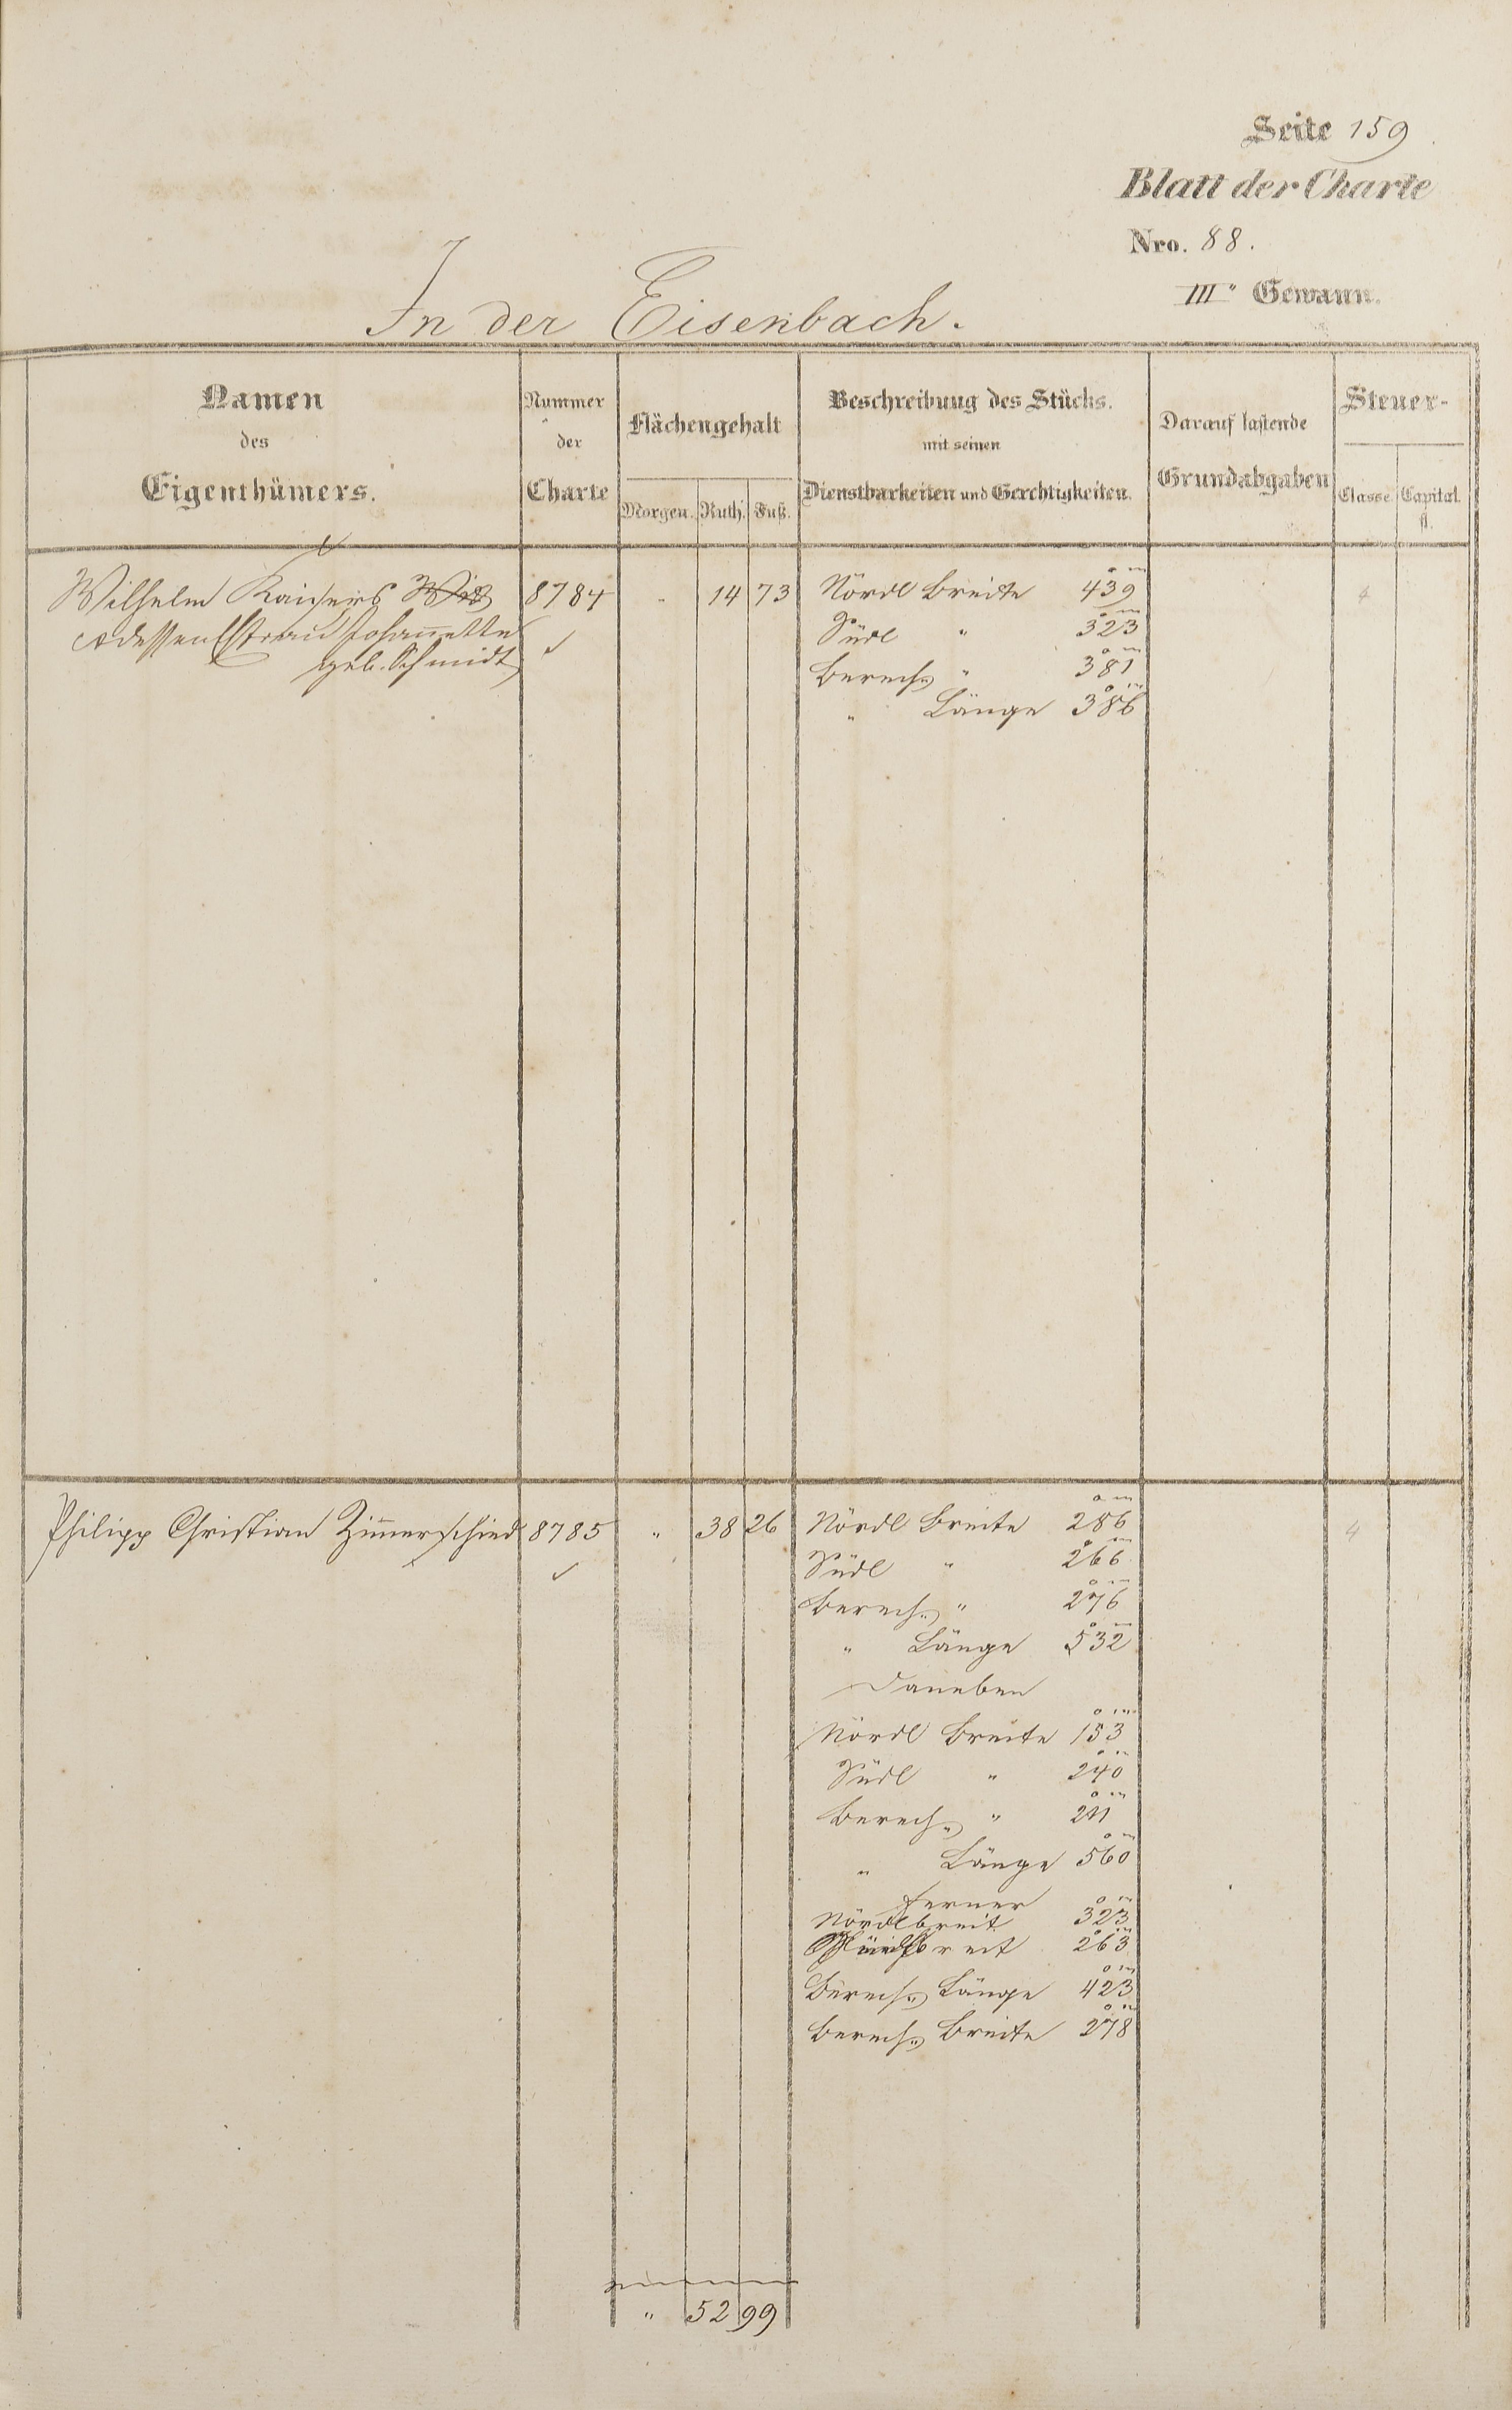 Seite 159
Blatt der Charte
Nro. 88.
III" Gewann.
In der Eisenbach.
Namen des Eigenthümers.
Nummer der Charte
Flächengehalt
Morgen. Ruth. Fuß.
Beschreibung des Stücks. mit seinen Dienstbarkeiten und Gerechtigkeiten.
Darauf lastende Grundabgaben
Steuer-
Classe. Capital. fl.
Wilhelm Kaisers 8784 " 14 73 Nördl Breite 439 4
dessen Ehefrau Johannette Südl " 323
geb. Schmidt Berech. " 381
" Länge 386
Philipp Christian Zimerschied 8785 " 38 26 Nördl Breite 286 4
Südl " 266
Berech. " 276
" Länge 532
Daneben
Nördl Breite 153
Südl " 240
Berech. " 211
" Länge 560
ferner
Nördlbreit 323
breit 263
Berech. Länge 423
Berech. Breite 278
" 52 99